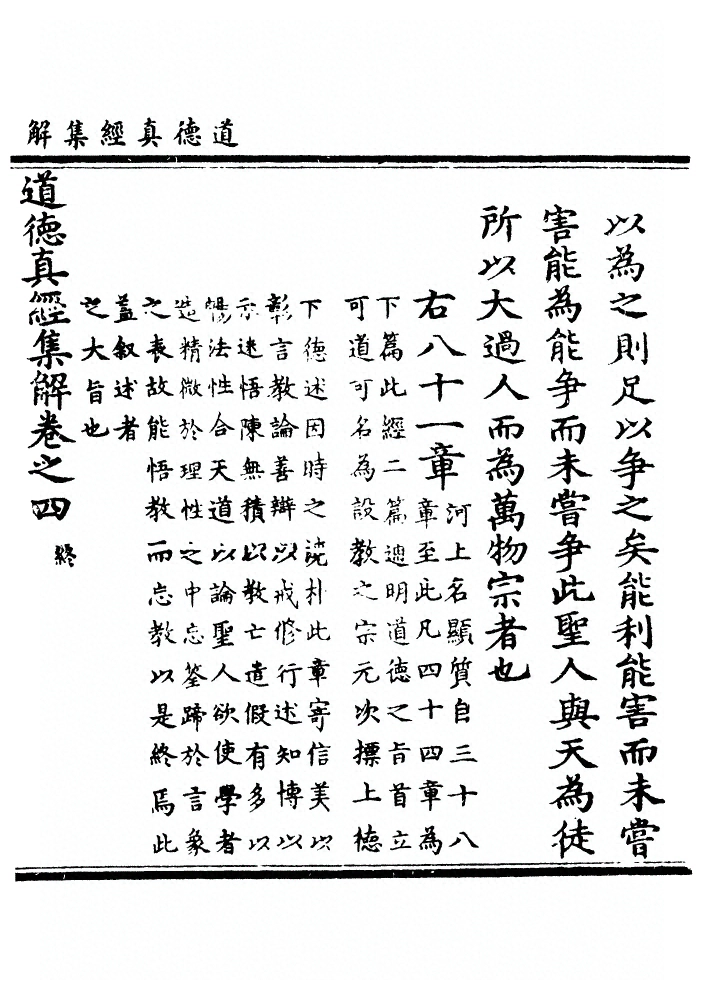 道德真經集解
以為之則足以争之矣能利能害而未嘗
害能為能争而未嘗争此聖人與天為徒
所以大過人而為萬物宗者也
右八十一章
河上名顯質自三十八
章至此凡四十四章為
下篇此經二篇迪明道德之旨首立
可道可名為設教之宗元次摽上德
下德述因時之澆朴此章寄信美以
彰言教論善辯以戒修行述知博以
示迷悟陳無積以教亡遣假有多以
暢法性合天道以論聖人欲使學者
造精微於理性之中忘筌蹄於言象
之表故能悟教而忘教以是終焉此
蓋叙述者
之大旨也
道德真經集解卷之四 終